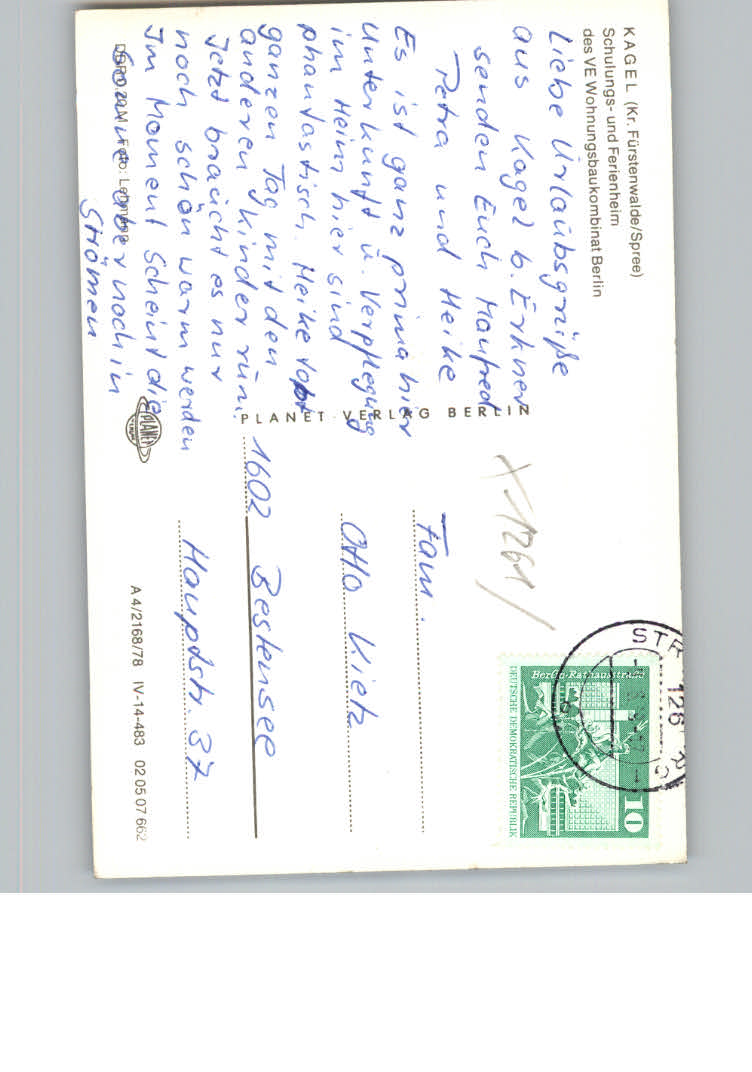 KAGEL (Kr. Fürstenwalde/Spree)
Schulungs- und Ferienheim
des VE Wohnungsbaukombinat Berlin
Liebe Urlaubsgrüße
aus Kagel b. Erkner
senden Euch Manfred
Petra und Heike
Es ist ganz prima hier
Unterkunft u. Verpflegung
im Heim hier sind
phantastisch. Heike tobt
ganzen Tag mit den
anderen Kinder rum.
Jetzt braucht es nur
noch schön warm werden
Im Moment scheint die
Sonne aber noch in
Strömen
Foto: Lehmann
PLANET-VERLAG BERLIN
PLANET
A 4/2168/78 IV-14-483 02 05 07 662
Fam.
Otto Kietz
1602 Bestensee
Hauptstr. 37
X 1261/
Berlin-Rathausstraße
DEUTSCHE DEMOKRATISCHE REPUBLIK
10
STR
126